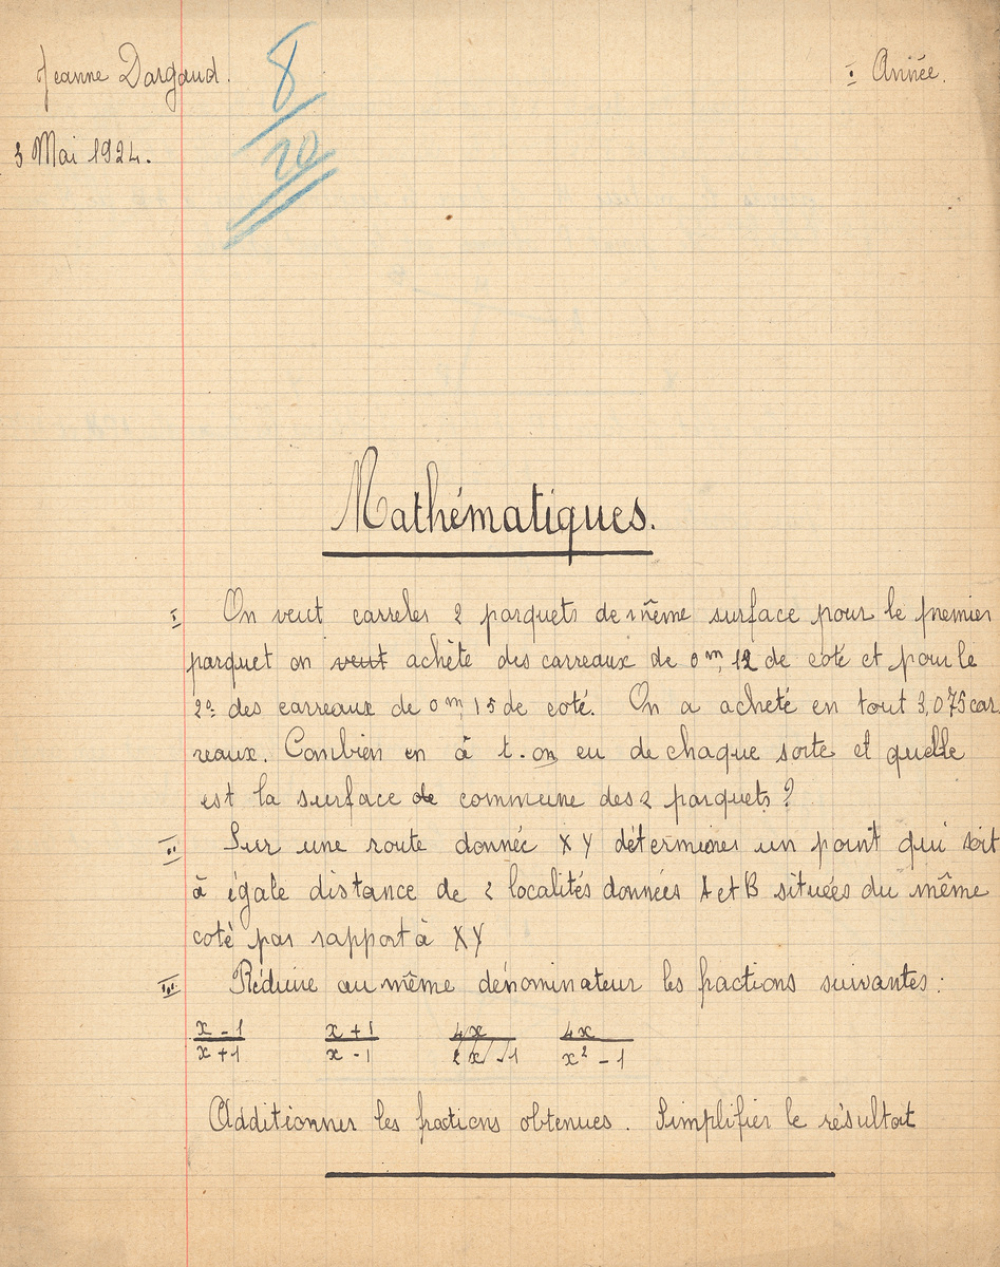 Jeanne Dargaud.
8/20
I Année.
3 Mai 1924.
Mathématiques.
I On veut carreler 2 parquets de même surface pour le premier
parquet on veut achète des carreaux de 0m,12 de coté et pour le
2º des carreaux de 0m,15 de coté. On a acheté en tout 3,075 car
reaux. Combien en à t-on eu de chaque sorte et quelle
est la surface de commune des 2 parquets ?
II Sur une route donnée XY déterminer un point qui soit
à égale distance de 2 localités données A et B situées du même
coté par rapport à XY
III Réduire au même dénominateur les fractions suivantes :
x - 1 x + 1 4x 4x
x + 1 x - 1 2x - 1 x² - 1
Additionner les fractions obtenues. Simplifier le résultat